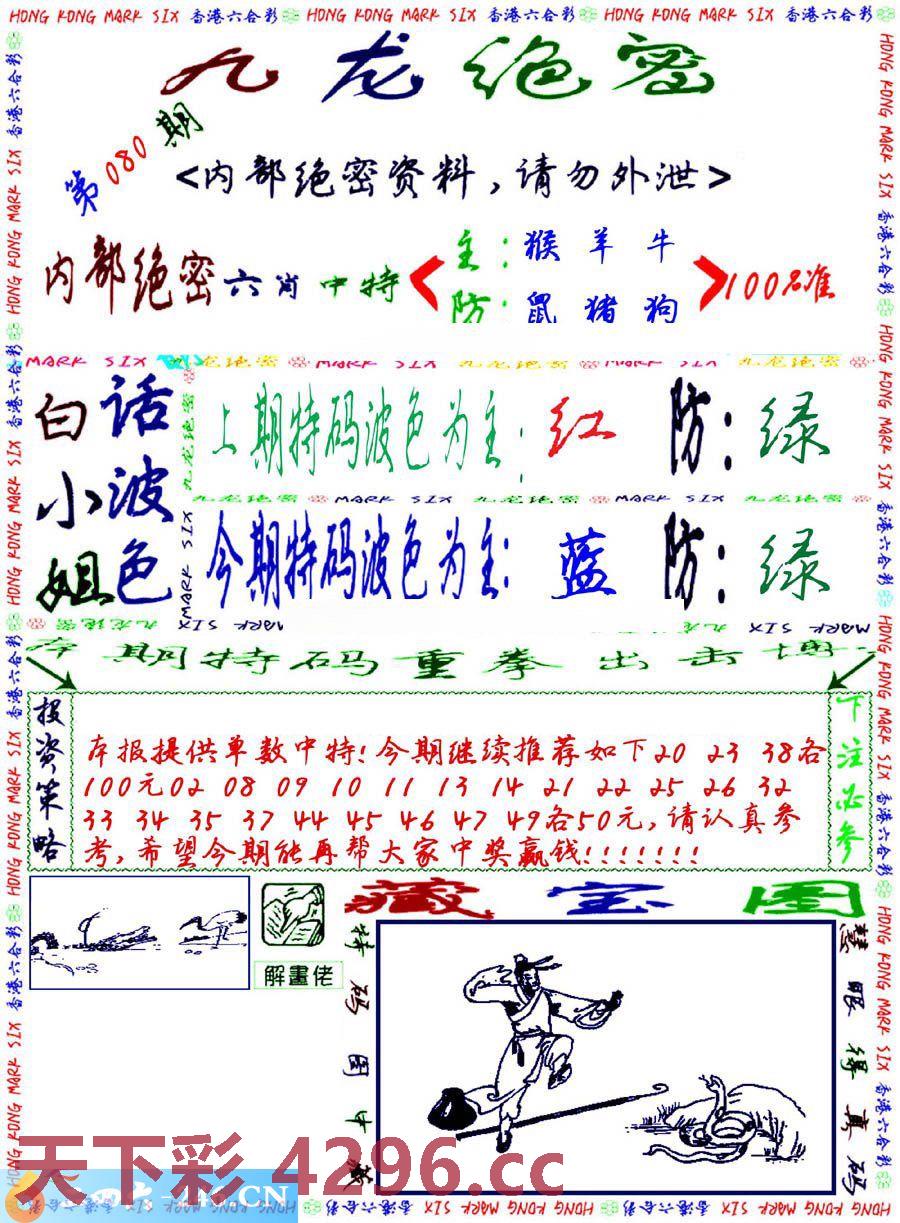 HONG KONG MARK SIX 香港六合彩 HONG KONG MARK SIX 香港六合彩 HONG KONG MARK SIX 香港六合彩
九龙绝密
第080期
<内部绝密资料,请勿外泄>
内部绝密六肖中特
主:猴羊牛
防:鼠猪狗
100%准
MARK SIX 九龙绝密 MARK SIX 九龙绝密 MARK SIX 九龙绝密
白小姐
话波色
上期特码波色为主:红 防:绿
九龙绝密 MARK SIX 九龙绝密 MARK SIX 九龙绝密
今期特码波色为主:蓝 防:绿
期特码重拳出击
投资策略
本报提供单数中特!今期继续推荐如下20 23 38各
100元02 08 09 10 11 13 14 21 22 25 26 32
33 34 35 37 44 45 46 47 49各50元,请认真参
考,希望今期能再帮大家中奖赢钱!!!!!!!
下注必参
解畫佬
藏宝图
特码图中藏
慧眼得真码
天下彩 4296.cc